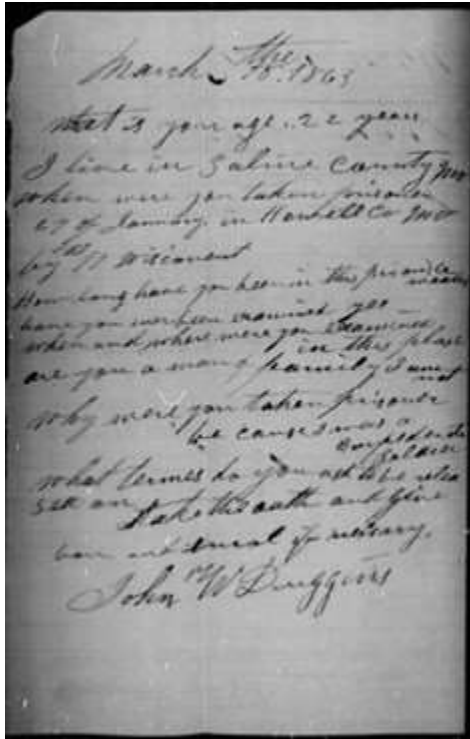 March the 8. 1863
what is your age. 22 year
I live in Saline County Mo
when were you taken prisoner
27 of January. in Howell Co Mo
by
How long have you been in this prison
have you ever been examined yes
when and where were you examined
in this place
are you a man of family I am
not
why were you taken prisoner
be cause I was a
Soldier
what termes do you ask to be relea
sed on
take the oath and give
bon
John W Duggins